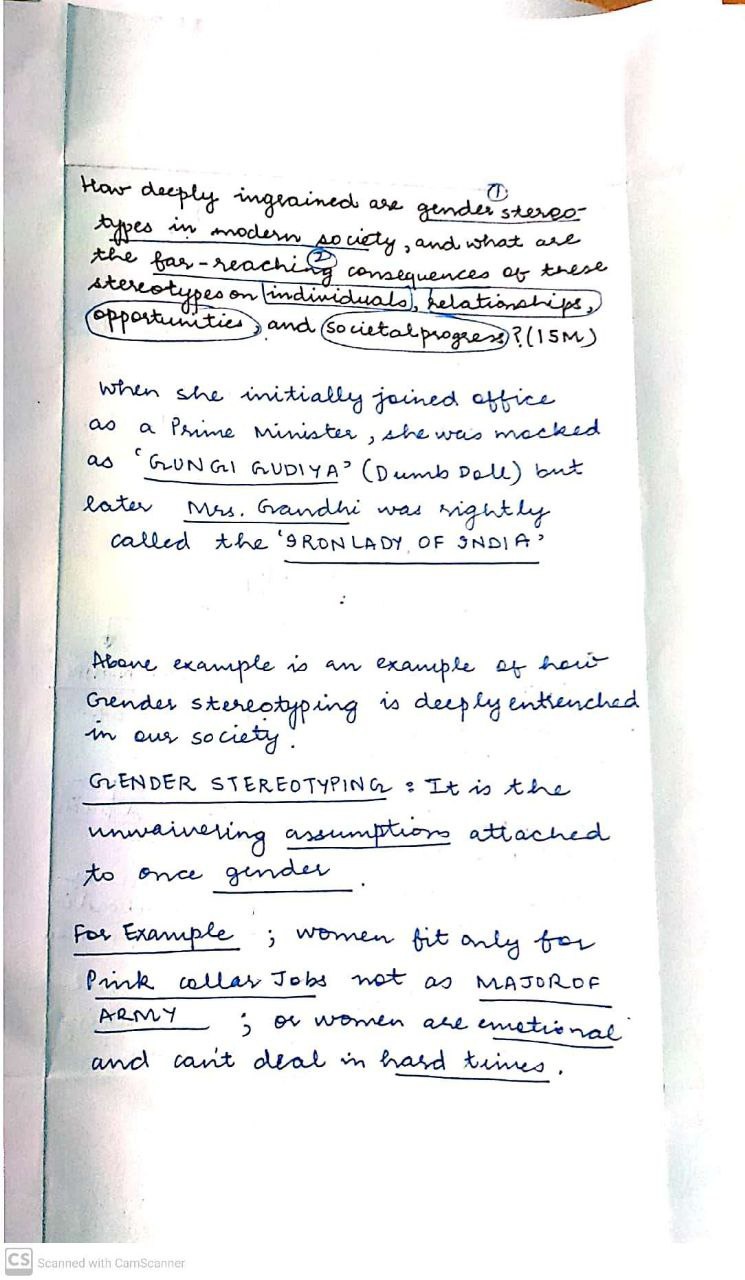 How deeply ingrained are gender stereo-
types in modern society, and what are
the far-reaching consequences of these
stereotypes on individuals, relationships,
opportunities, and societal progress? (15M)
①
②
When she initially joined office
as a Prime Minister, she was mocked
as 'GUNGI GUDIYA' (Dumb Doll) but
later Mrs. Gandhi was rightly
called the 'IRON LADY OF INDIA'
Above example is an example of how
Gender stereotyping is deeply entrenched
in our society.
GENDER STEREOTYPING : It is the
unwaivering assumptions attached
to once gender.
For Example ; women fit only for
Pink collar Jobs not as MAJOR OF
ARMY ; or women are emotional
and can't deal in hard times.
CS Scanned with CamScanner